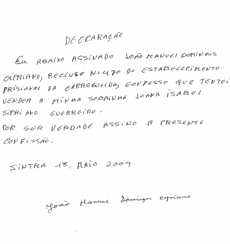 DECLARAÇÃO
EU ABAIXO ASSINADO JOÃO MANUEL DOMINGUES
CIPRIANO, RECLUSO Nº 470 DO ESTABELECIMENTO
PRISIONAL DA CARREGUEIRA, CONFESSO QUE TENTEI
VENDER A MINHA SOBRINHA JOANA ISABEL
SIPRIANO GUERREIRO.
POR SER VERDADE ASSINO A PRESENTE
CONFISSÃO.
SINTRA 18, MAIO 2009
João Manuel Domingos Cipriano